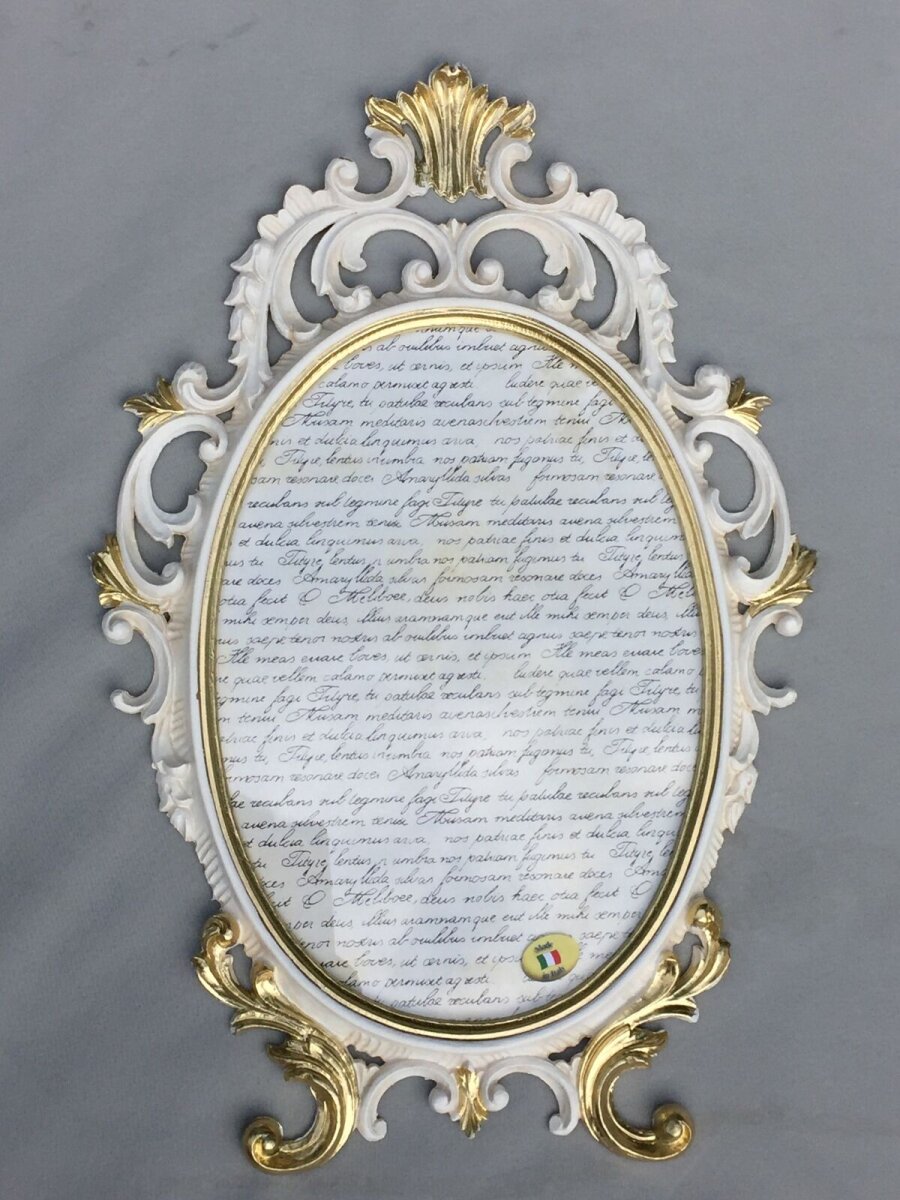 numque
s ab ouilibus imbuet agnu
boves, ut cernis, et ipsum Ille m
calamo permixet agresti ludere quae ve
Tityre, tu patulae recubans sub tegmine fagi
Musam meditaris avenasilvestrem tenui Mu
nis et dulcia linquimus arva nos patriae finis et d
Tityre, lentus inumbra nos patriam fugimus tu, Tityre, le
sam resonare doces Amaryllida silvas formosam resonare
recubans sub tegmine fagi Tityre tu patulae recubans sub teg
avena silvestrem tenui Musam meditaris avena silvestrem
et dulcia linquimus arva, nos patriae finis et dulcia linquim
us tu Tityre, lentus n umbra nos patriam fugimus tu Tityre, lentus
are doces Amaryllida silvas formosam resonare doces Amaryllida
otia fecit O Meliboee, deus nobis haec otia fecit O Meliboee,
mihi semper deus, illius aramnamque erit ille mihi semper deus, illiu
us saepe tenor nostris ab ouilibus imbuet agnus saepe tenor nostris
Ille meas errare boves, ut cernis, et ipsum Ille meas errare boves
re quae vellem calamo permixet agresti. ludere quae vellem calamo
egmine fagi Tityre, tu patulae recubans sub tegmine fagi Tityre, tu
m tenui Musam meditaris avenasilvestrem tenui, Musam m
atriae finis et dulcia linquimus arva nos patriae finis et dulcia
tu, Tityre, lentus inumbra nos patriam fugimus tu, Tityre, lentus
rmosam resonare doces Amaryllida silvas formosam resonare doce
lae recubans sub tegmine fagi Tityre tu patulae recubans sub teg
avena silvestrem tenui Musam meditaris avena silvestrem
et dulcia linquimus arva, nos patriae finis et dulcia linqui
tu Tityre, lentus n umbra nos patriam fugimus tu Tityre, le
oces Amaryllida silvas formosam resonare doces Ama
fecit O Meliboee, deus nobis haec otia fecit O
per deus, illius aramnamque erit ille mihi semper
enor nostris ab ouilibus imbuet saepe
rare boves, ut cernis, et ips lle me
lamo permixet agresti.
patulae recubans sub te
Made
in Italy